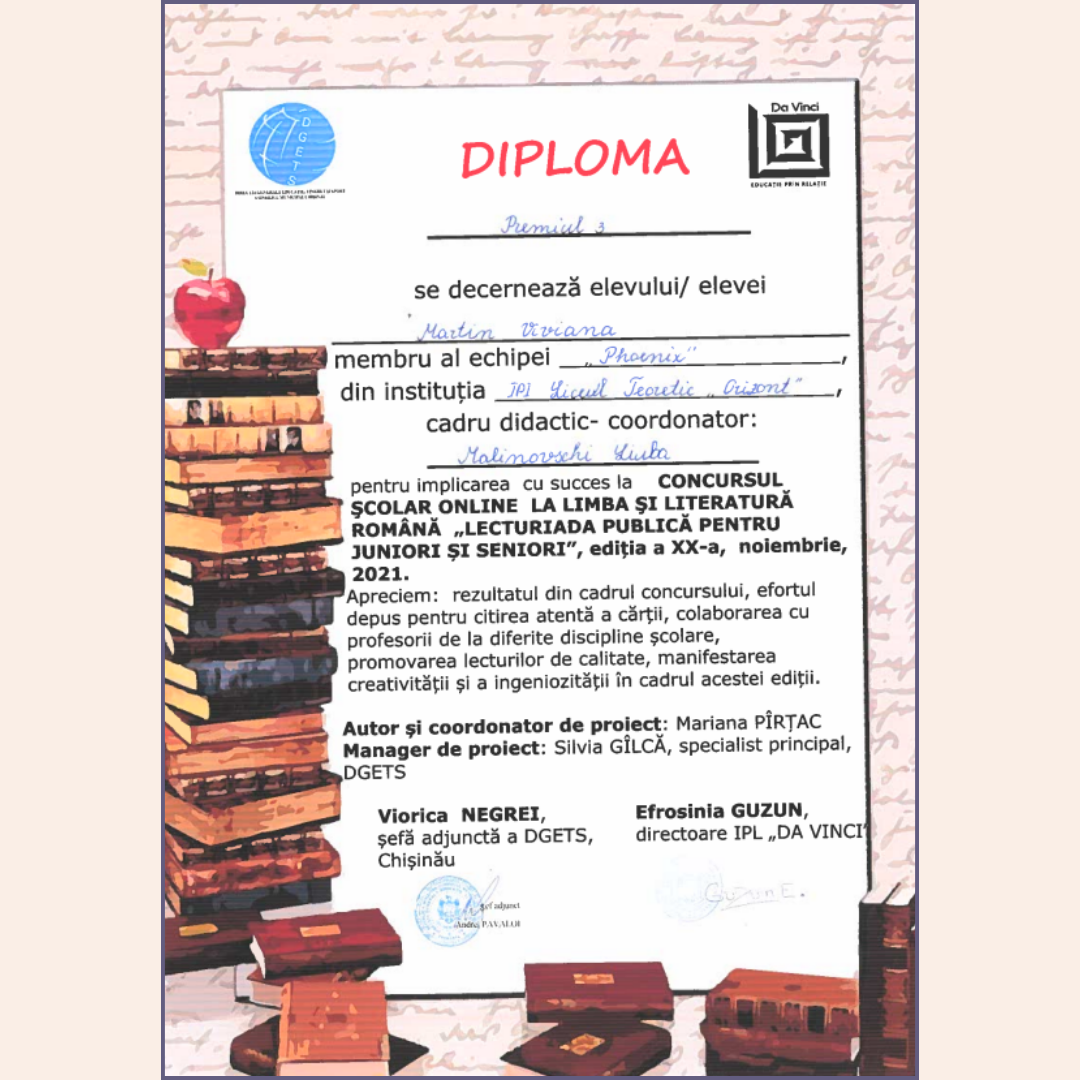 DGETS
Da Vinci
EDUCAȚIE PRIN RELAȚIE
DIPLOMA
Premiul 3
se decernează elevului/ elevei
Martin Viviana
membru al echipei „Phoenix”,
din instituția IPI Liceul Teoretic „Orizont”,
cadru didactic- coordonator:
Malinovschi Liuba
pentru implicarea cu succes la CONCURSUL
ŞCOLAR ONLINE LA LIMBA ŞI LITERATURĂ
ROMÂNĂ „LECTURIADA PUBLICĂ PENTRU
JUNIORI ŞI SENIORI”, ediția a XX-a, noiembrie,
2021.
Apreciem: rezultatul din cadrul concursului, efortul
depus pentru citirea atentă a cărții, colaborarea cu
profesorii de la diferite discipline școlare,
promovarea lecturilor de calitate, manifestarea
creativității și a ingeniozității în cadrul acestei ediții.
Autor și coordonator de proiect: Mariana PÎRȚAC
Manager de proiect: Silvia GÎLCĂ, specialist principal,
DGETS
Viorica NEGREI,
șefă adjunctă a DGETS,
Chișinău
Efrosinia GUZUN,
directoare IPL „DA VINCI”
șef adjunct
Andrei PAVALOI
Guzun E.